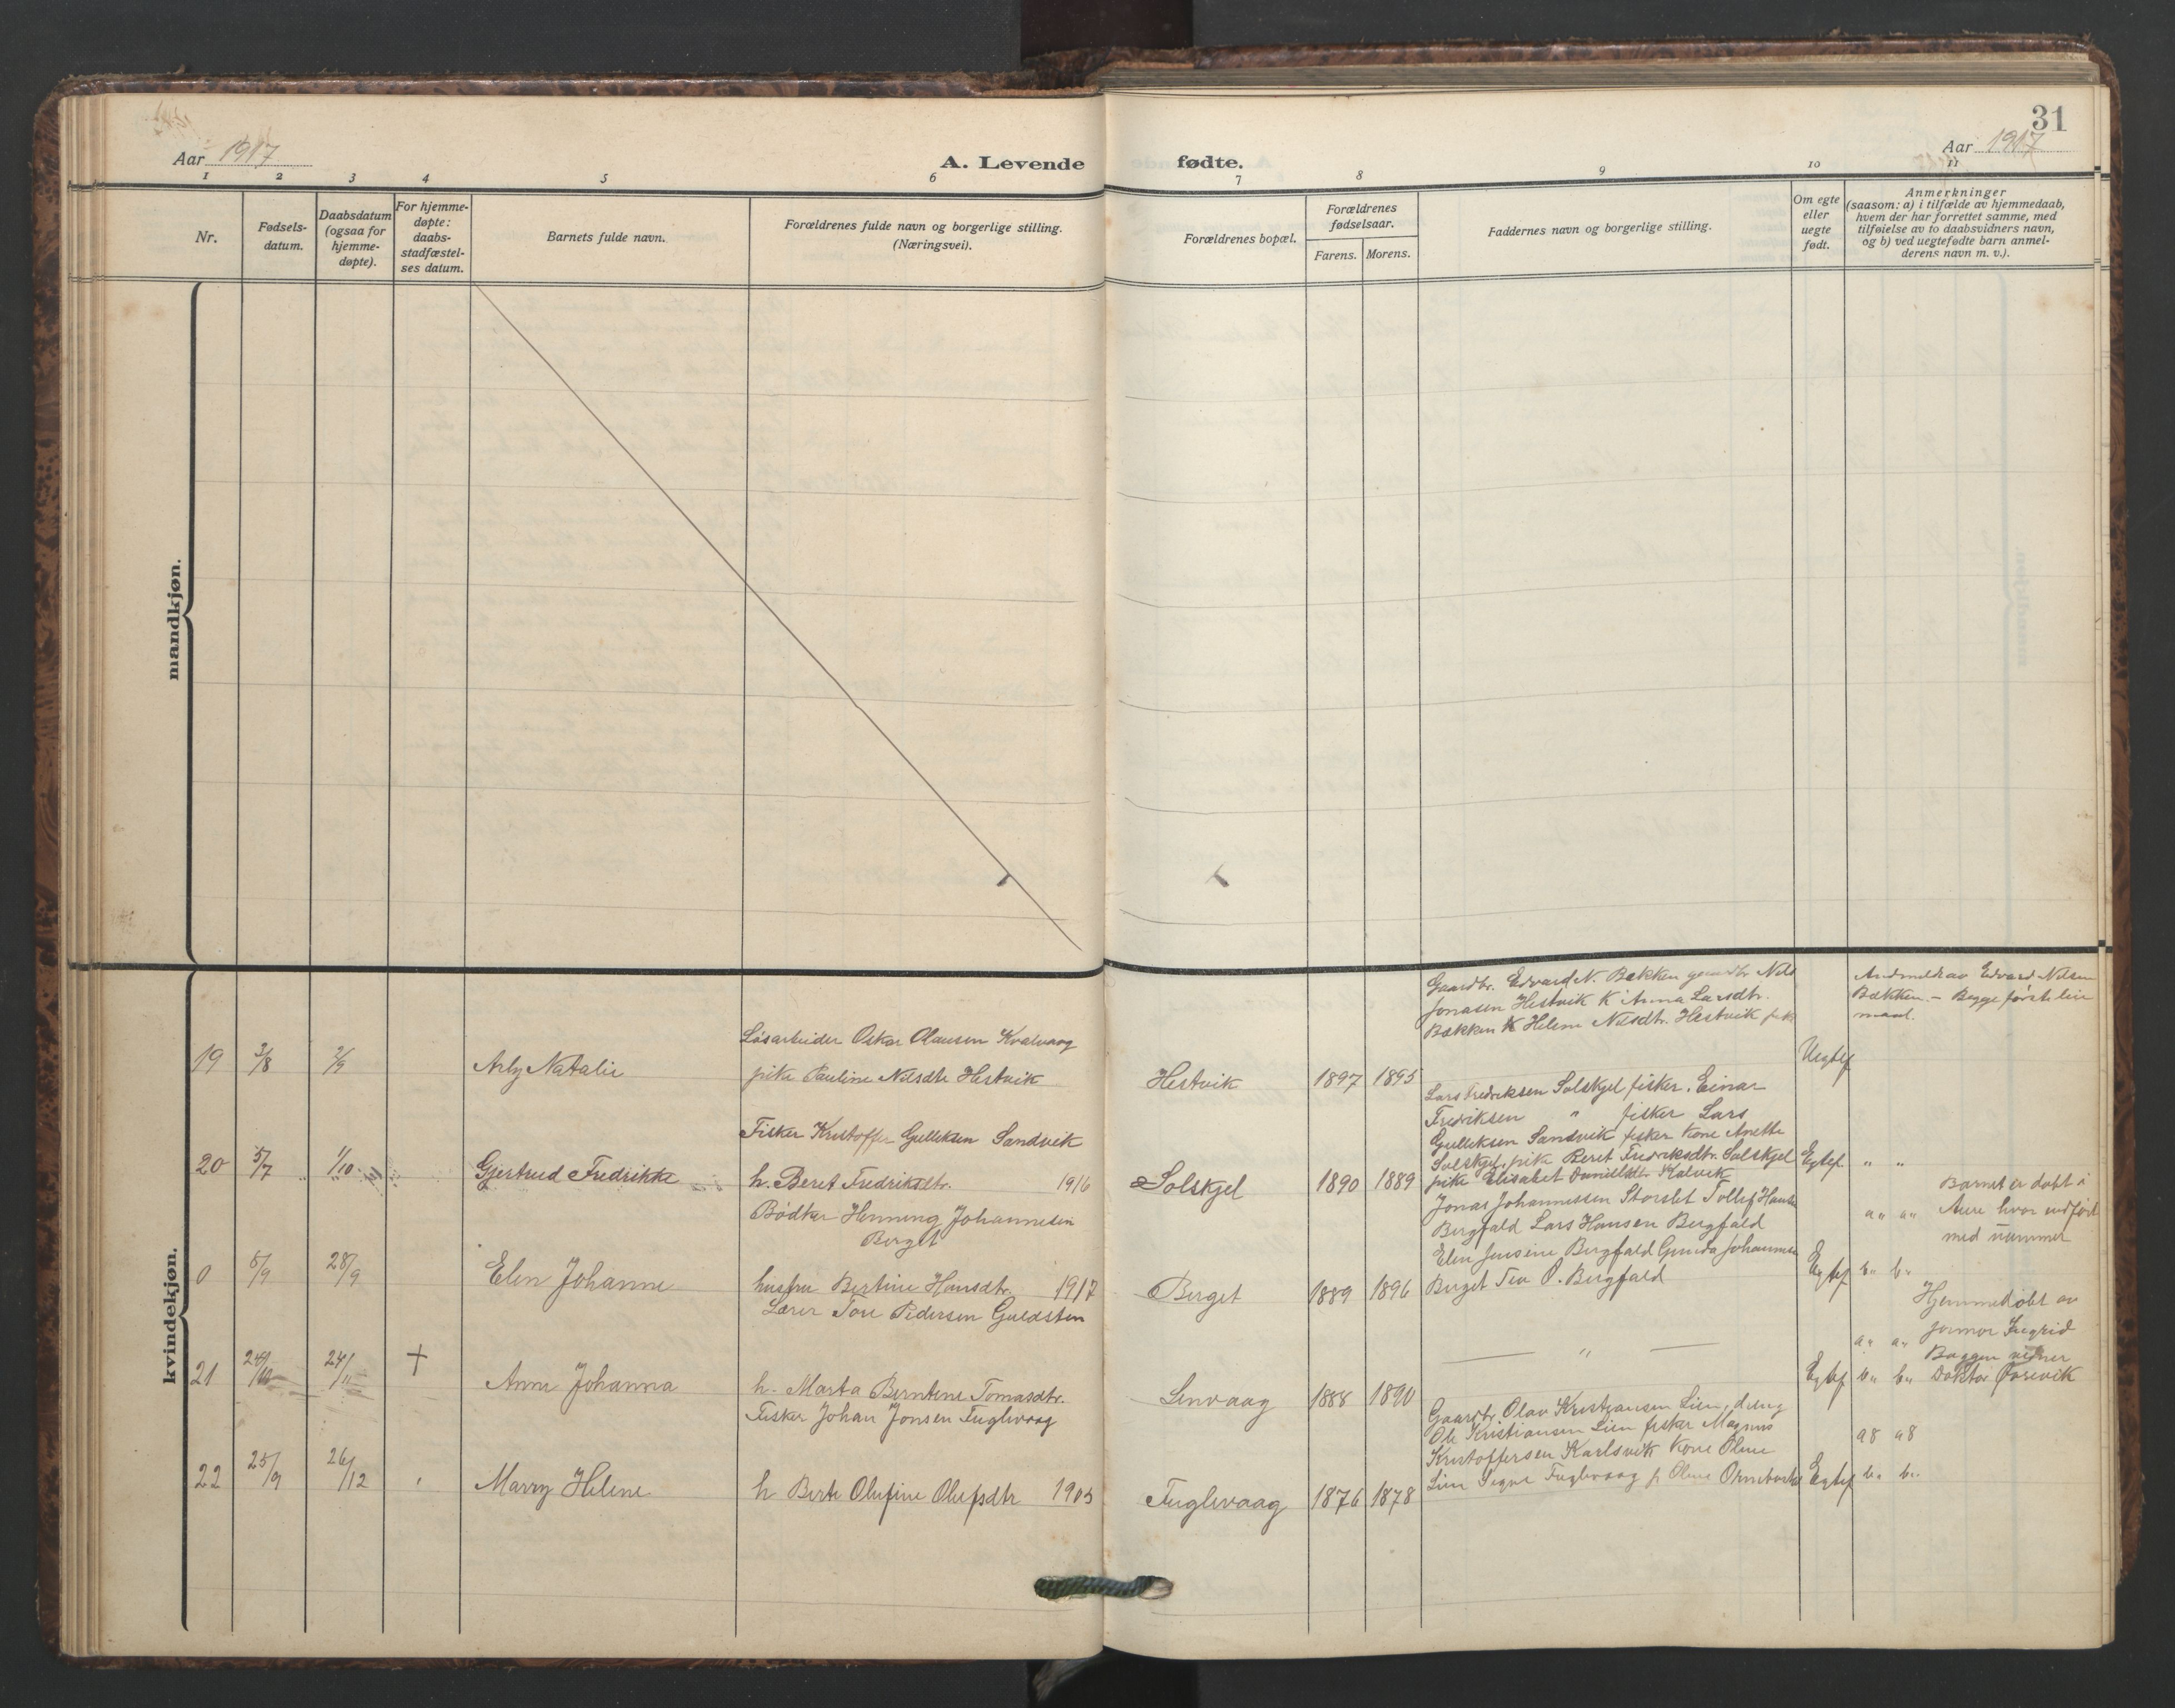 31
Aar 1917
A. Levende fødte.
Aar 1917
1 2 3 4 5 6 7 8 9 10 11
Nr.
Fødsels-
datum.
Daabsdatum
(ogsaa for
hjemme-
døpte).
For hjemme-
døpte:
daabs-
stadfæstel-
ses datum.
Barnets fulde navn.
Forældrenes fulde navn og borgerlige stilling.
(Næringsvei).
Forældrenes bopæl.
Forældrenes
fødselsaar.
Farens. Morens.
Faddernes navn og borgerlige stilling.
Om egte
eller
uegte
født.
Anmerkninger
(saasom: a) i tilfælde av hjemmedaab,
hvem der har forrettet samme, med
tilføielse av to daabsvidners navn,
og b) ved uegtefødte barn anmel-
derens navn m. v.).
mandkjøn.
kvindekjøn.
19 3/8 2/9 Arly Natalie
Løsarbeider Oskar Olausen Kvalvaag
pike Pauline Nilsdtr Hestvik
Hestvik 1897 1895
Gaardbr. Edvard N. Bækken gaardbr Nils
Jonasen Hestvik K Anna Larsdtr.
Bækken K Helene Nilsdtr. Hestvik
Uegtef
Anmeldt av Edvard Nilsen
Bækken. – Begge første leie
maal.
20 5/7 1/10 Gjertrud Fredrikke
Fisker Kristoffer Gulliksen Sandvik
h. Beret Fredriksdtr. 1916
Solskjel 1890 1889
Lars Fredriksen Solskjel fisker. Einar
Fredriksen " fisker Lars
Gulliksen Sandvik fisker Kone Anette
Solskjel, pike Beret Fredriksdtr. Solskjel
pike Elisabet Kalvik
Egtef. " "
0 5/9 28/9 Elen Johanne
Bødker Henning Johannesen
Berget
husfru Bertine Hansdtr. 1917
Berget 1889 1896
Jonas Johannessen Storslet Tollef Hansen
Bergfald Lars Hansen Bergfald
Elen Jensine Bergfald Gunda Johannesen
Berget Tea O. Bergfald
Egtef
a" a"
b" b"
Barnet er døbt i
Aure hvor indført
med nummer
21 24/10 24/11 + Anne Johanna
Lærer Tore Pedersen Guldsten
h. Marta Berntine Tomasdtr.
Lenvaag 1888 1890
— " —
Egtef
a" a"
b" b"
Hjemmedøbt av
jormor Ingrid
Baggen vidner
Doktor
22 25/9 26/12 Marry Helene
Fisker Johan Jonsen Fuglevaag
h Berte Olufine Olufsdtr 1905
Fuglevaag 1876 1878
Gaardbr. Olav Kristiansen Lien,
Ole Kristiansen Lien fisker Magnus
Kristoffersen Karlsvik Kone Oline
Lien Signe Fuglevaag p Oline
Egtef
a8 a8
b" b"